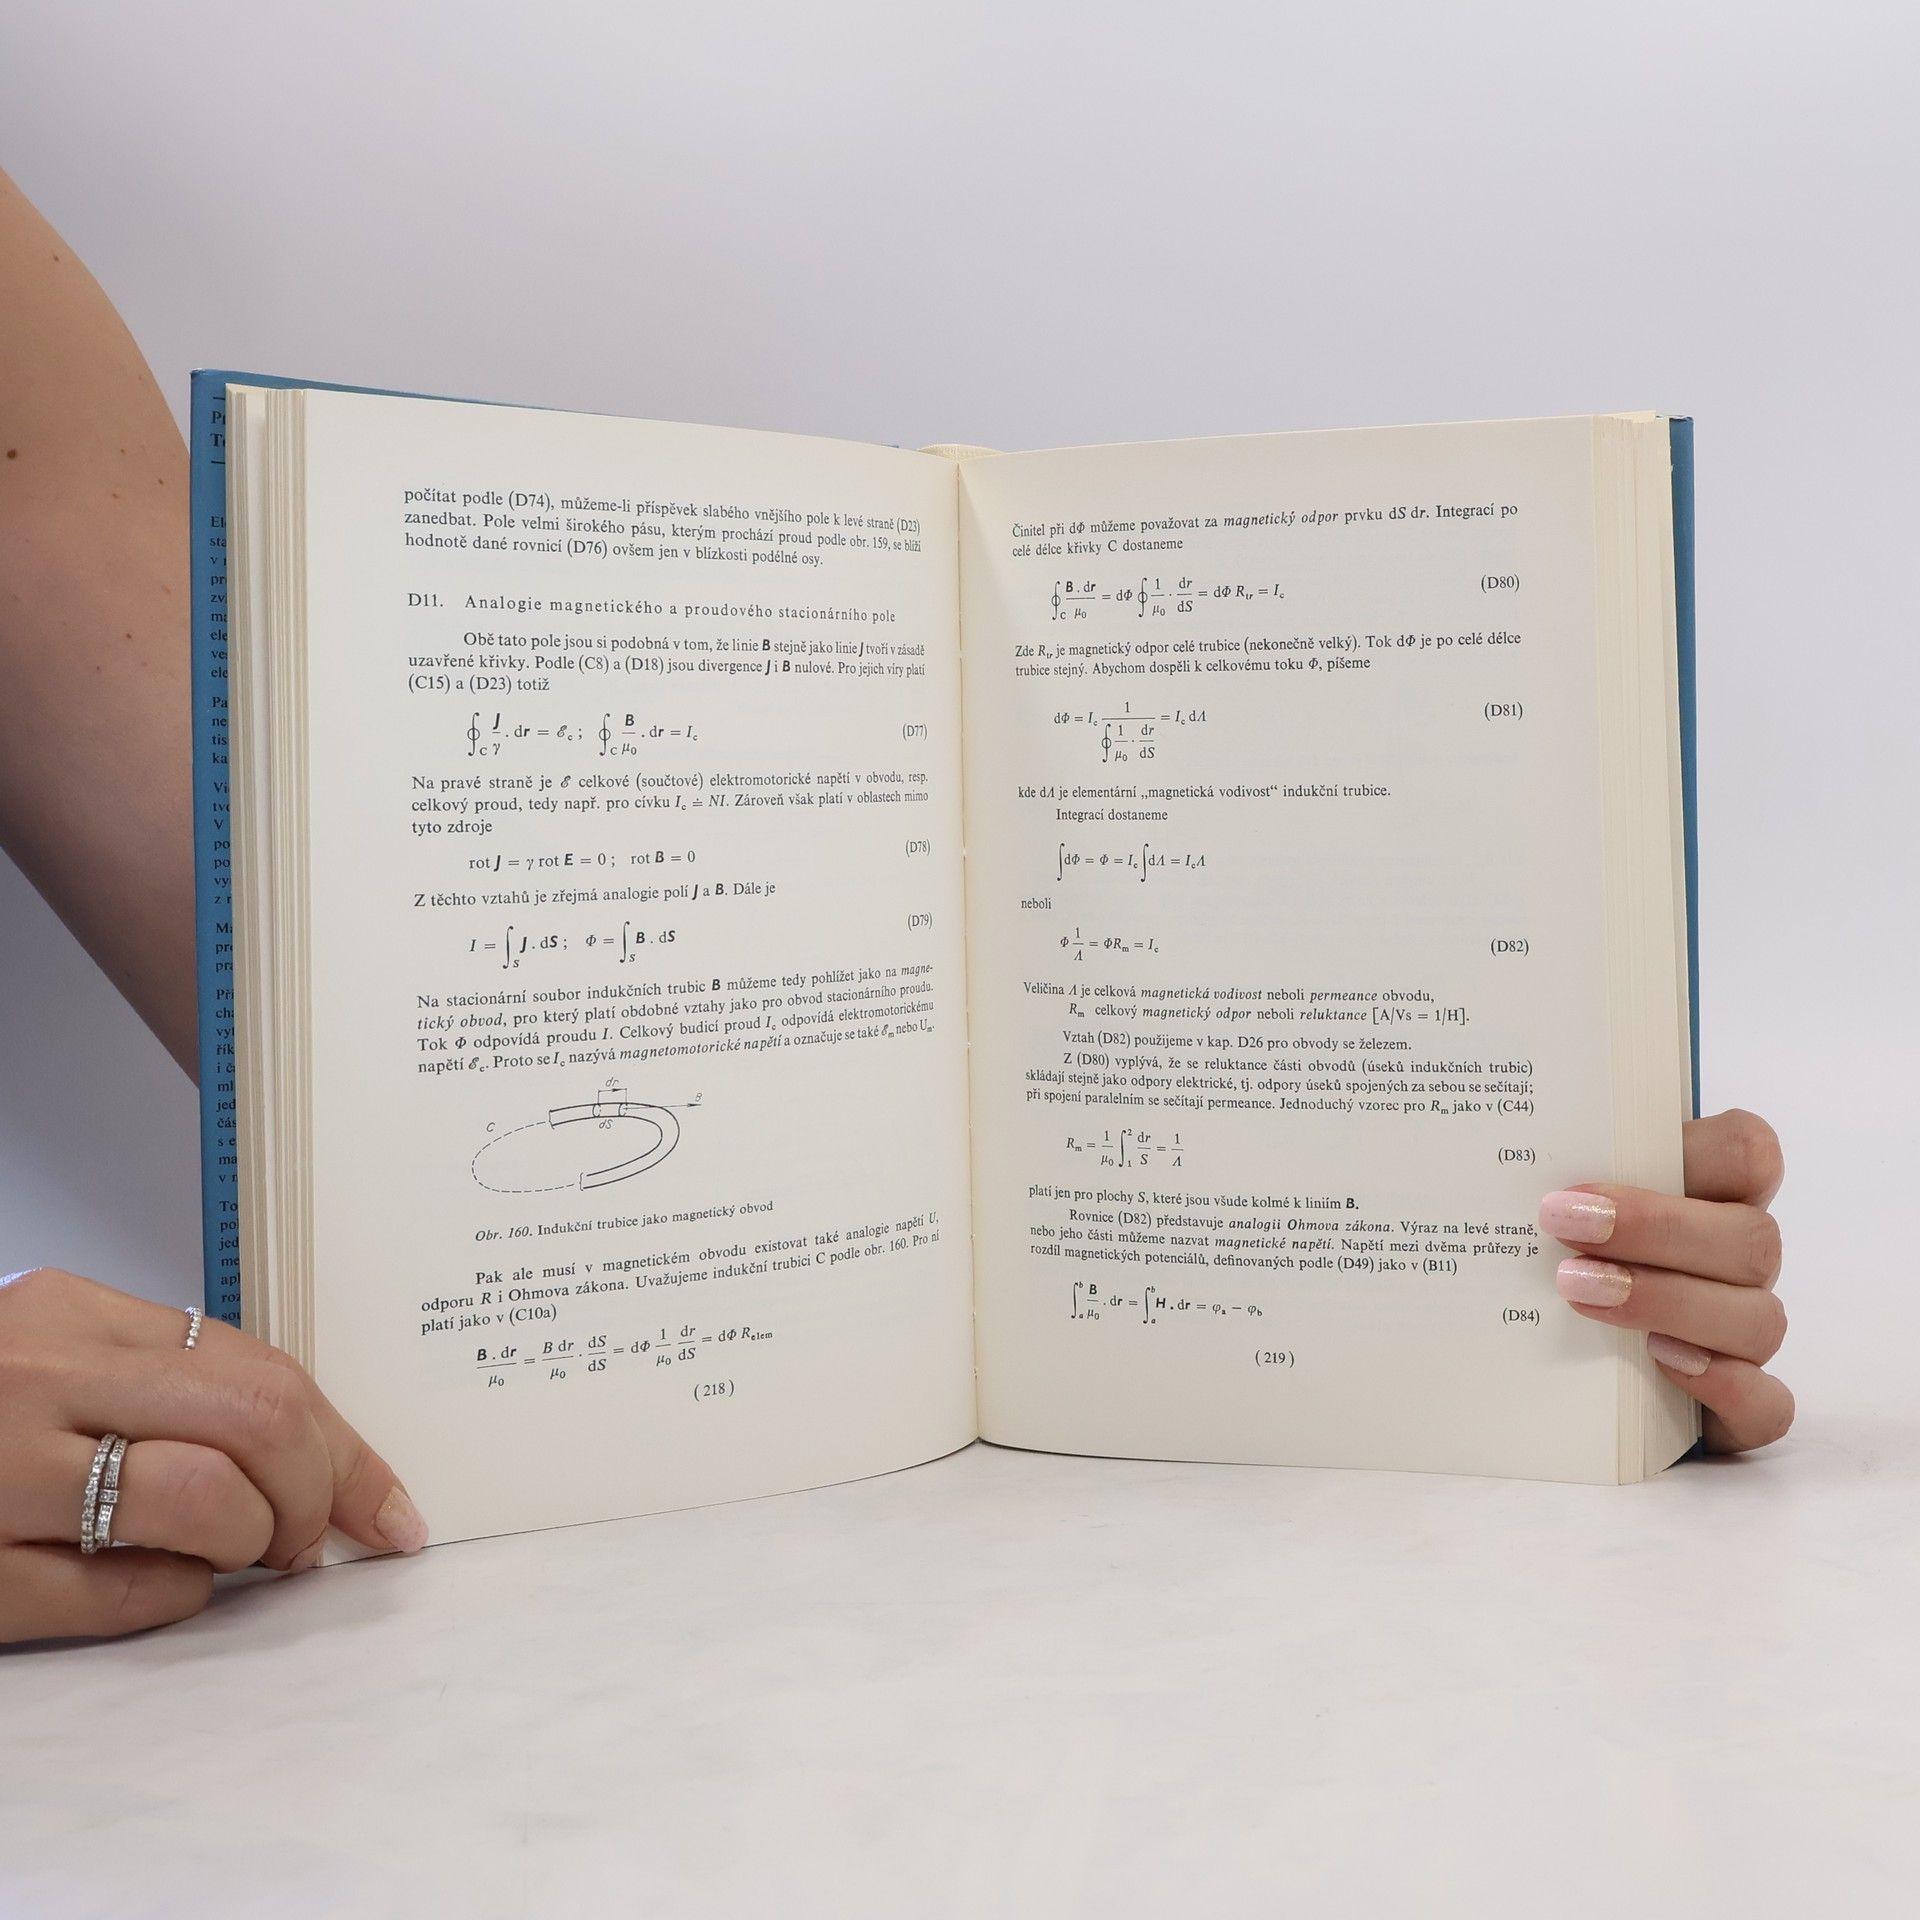 počítat podle (D74), můžeme-li příspěvek slabého vnějšího pole k levé straně (D23)
zanedbat. Pole velmi širokého pásu, kterým prochází proud podle obr. 159, se blíží
hodnotě dané rovnicí (D76) ovšem jen v blízkosti podélné osy.
D11. Analogie magnetického a proudového stacionárního pole
Obě tato pole jsou si podobná v tom, že linie B stejně jako linie J tvoří v zásadě
uzavřené křivky. Podle (C8) a (D18) jsou divergence J i B nulové. Pro jejich víry platí
(C15) a (D23) totiž
∮_C J/γ . dr = ℰ_c ; ∮_C B/μ₀ . dr = I_c (D77)
Na pravé straně je ℰ celkové (součtové) elektromotorické napětí v obvodu, resp.
celkový proud, tedy např. pro cívku I_c ≐ NI. Zároveň však platí v oblastech mimo
tyto zdroje
rot J = γ rot E = 0 ; rot B = 0 (D78)
Z těchto vztahů je zřejmá analogie polí J a B. Dále je
I = ∫_S J . dS ; Φ = ∫_S B . dS (D79)
Na stacionární soubor indukčních trubic B můžeme tedy pohlížet jako na magne-
tický obvod, pro který platí obdobné vztahy jako pro obvod stacionárního proudu.
Tok Φ odpovídá proudu I. Celkový budicí proud I_c odpovídá elektromotorickému
napětí ℰ_c. Proto se I_c nazývá magnetomotorické napětí a označuje se také ℰ_m nebo U_m.
dr
B
C
dS
Obr. 160. Indukční trubice jako magnetický obvod
Pak ale musí v magnetickém obvodu existovat také analogie napětí U,
odporu R i Ohmova zákona. Uvažujeme indukční trubici C podle obr. 160. Pro ni
platí jako v (C10a)
B . dr/μ₀ = B dr/μ₀ . dS/dS = dΦ 1/μ₀ dr/dS = dΦ R_elem
(218)
Činitel při dΦ můžeme považovat za magnetický odpor prvku dS dr. Integrací po
celé délce křivky C dostaneme
∮_C B . dr/μ₀ = dΦ ∮ 1/μ₀ . dr/dS = dΦ R_tr = I_c (D80)
Zde R_tr je magnetický odpor celé trubice (nekonečně velký). Tok dΦ je po celé délce
trubice stejný. Abychom dospěli k celkovému toku Φ, píšeme
dΦ = I_c 1/(∮ 1/μ₀ . dr/dS) = I_c dΛ (D81)
kde dΛ je elementární „magnetická vodivost“ indukční trubice.
Integrací dostaneme
∫dΦ = Φ = I_c ∫dΛ = I_cΛ
neboli
Φ 1/Λ = ΦR_m = I_c (D82)
Veličina Λ je celková magnetická vodivost neboli permeance obvodu,
R_m celkový magnetický odpor neboli reluktance [A/Vs = 1/H].
Vztah (D82) použijeme v kap. D26 pro obvody se železem.
Z (D80) vyplývá, že se reluktance části obvodů (úseků indukčních trubic)
skládají stejně jako odpory elektrické, tj. odpory úseků spojených za sebou se sečítají;
při spojení paralelním se sečítají permeance. Jednoduchý vzorec pro R_m jako v (C44)
R_m = 1/μ₀ ∫₁² dr/S = 1/Λ (D83)
platí jen pro plochy S, které jsou všude kolmé k liniím B.
Rovnice (D82) představuje analogii Ohmova zákona. Výraz na levé straně,
nebo jeho části můžeme nazvat magnetické napětí. Napětí mezi dvěma průřezy je
rozdíl magnetických potenciálů, definovaných podle (D49) jako v (B11)
∫_a^b B/μ₀ . dr = ∫_a^b H . dr = φ_a − φ_b (D84)
(219)